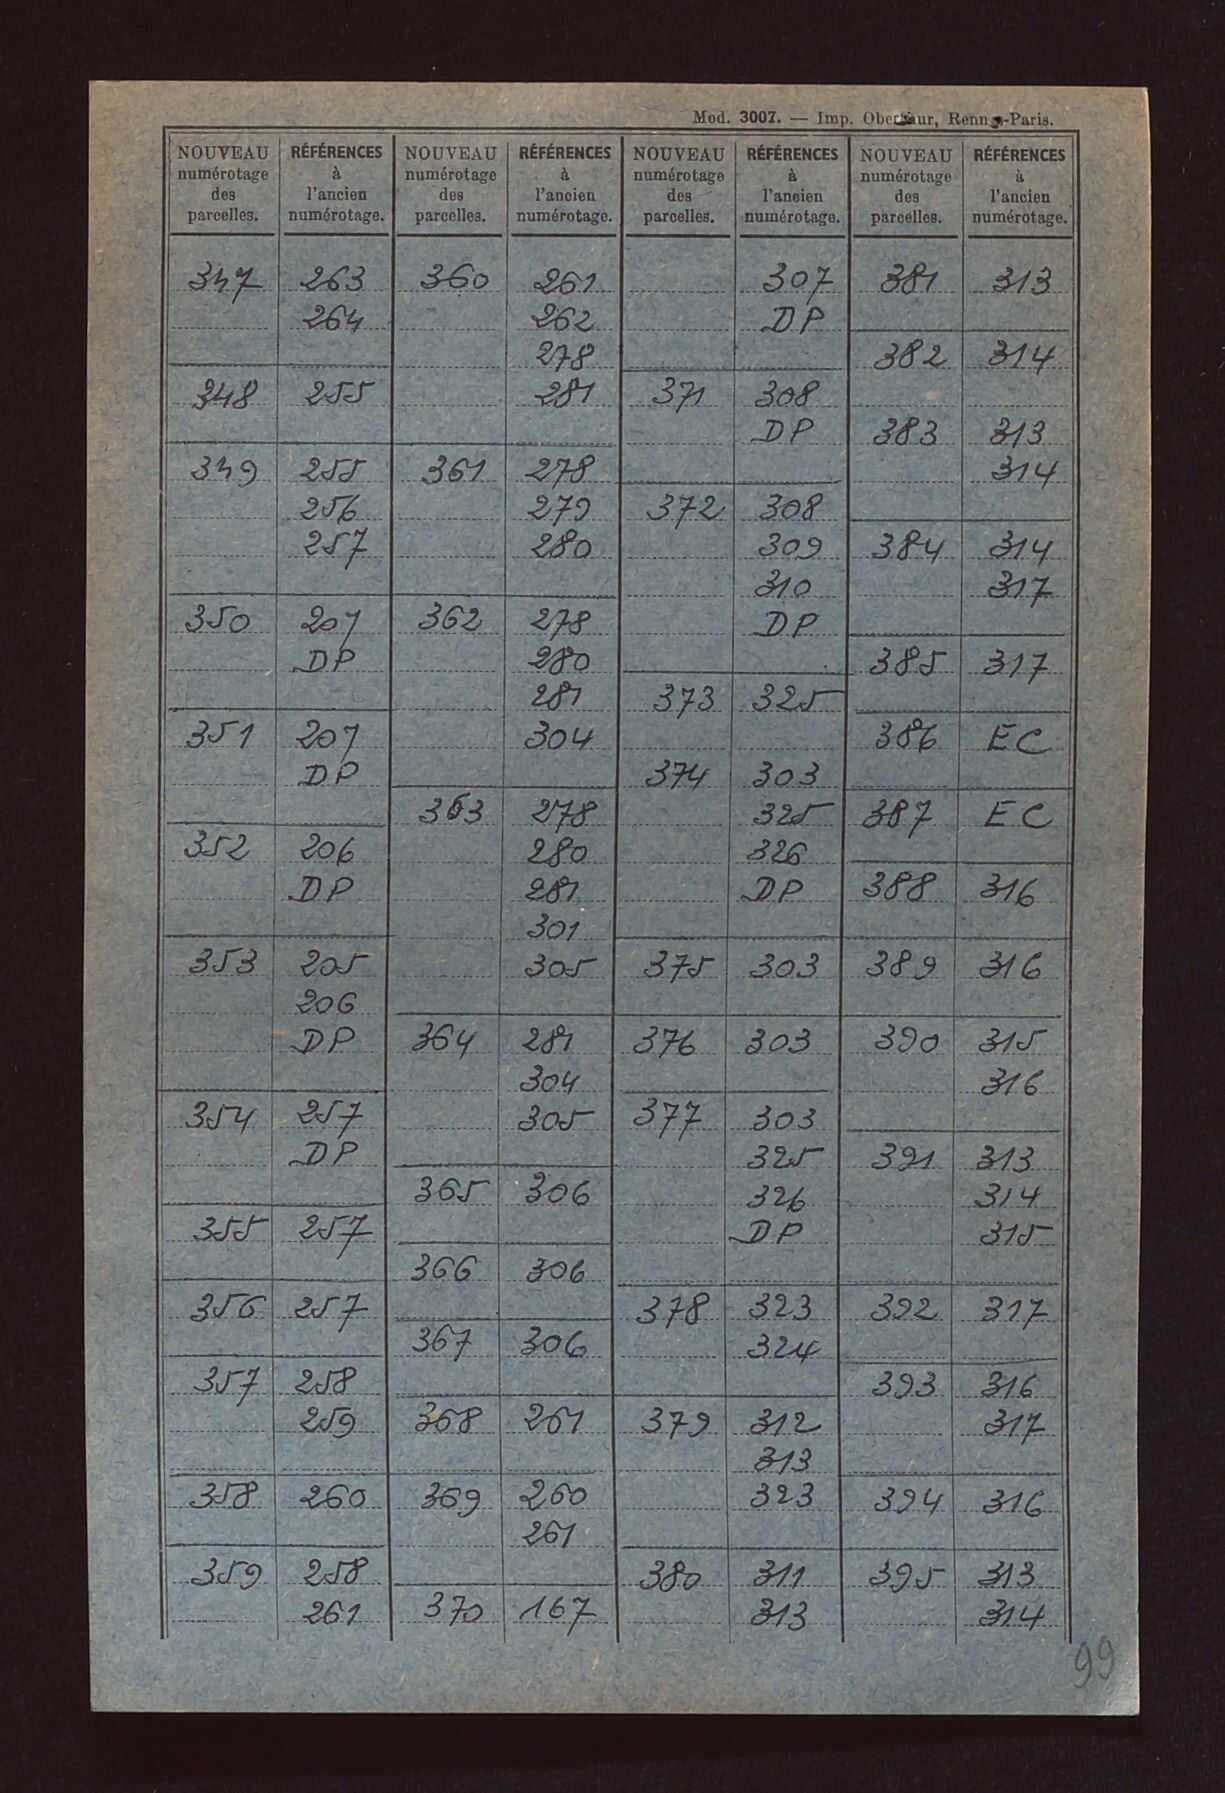 Mod. 3007. — Imp. Oberthur, Rennes-Paris.
NOUVEAU numérotage des parcelles. RÉFÉRENCES à l'ancien numérotage.
347 263
264
348 255
349 255
256
257
350 207
DP
351 207
DP
352 206
DP
353 205
206
DP
354 257
DP
355 257
356 257
357 258
259
358 260
359 258
261
NOUVEAU numérotage des parcelles. RÉFÉRENCES à l'ancien numérotage.
360 261
262
278
281
361 278
279
280
362 278
280
281
304
363 278
280
281
301
305
364 281
304
305
365 306
366 306
367 306
368 261
369 260
261
370 167
NOUVEAU numérotage des parcelles. RÉFÉRENCES à l'ancien numérotage.
307
DP
371 308
DP
372 308
309
310
DP
373 325
374 303
325
326
DP
375 303
376 303
377 303
325
326
DP
378 323
324
379 312
313
323
380 311
313
NOUVEAU numérotage des parcelles. RÉFÉRENCES à l'ancien numérotage.
381 313
382 314
383 313
314
384 314
317
385 317
386 EC
387 EC
388 316
389 316
390 315
316
391 313
314
315
392 317
393 316
317
394 316
395 313
314
99